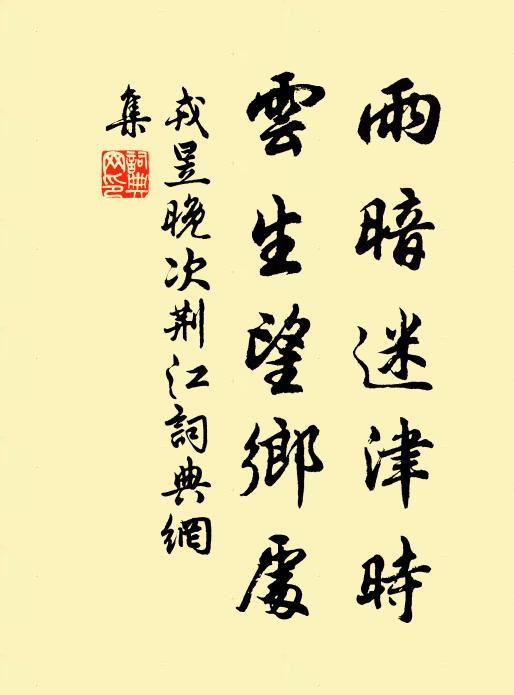 雨暗迷津時
雲生望鄉處
戎昱晚次荆江詞典網
集
詞典
网印